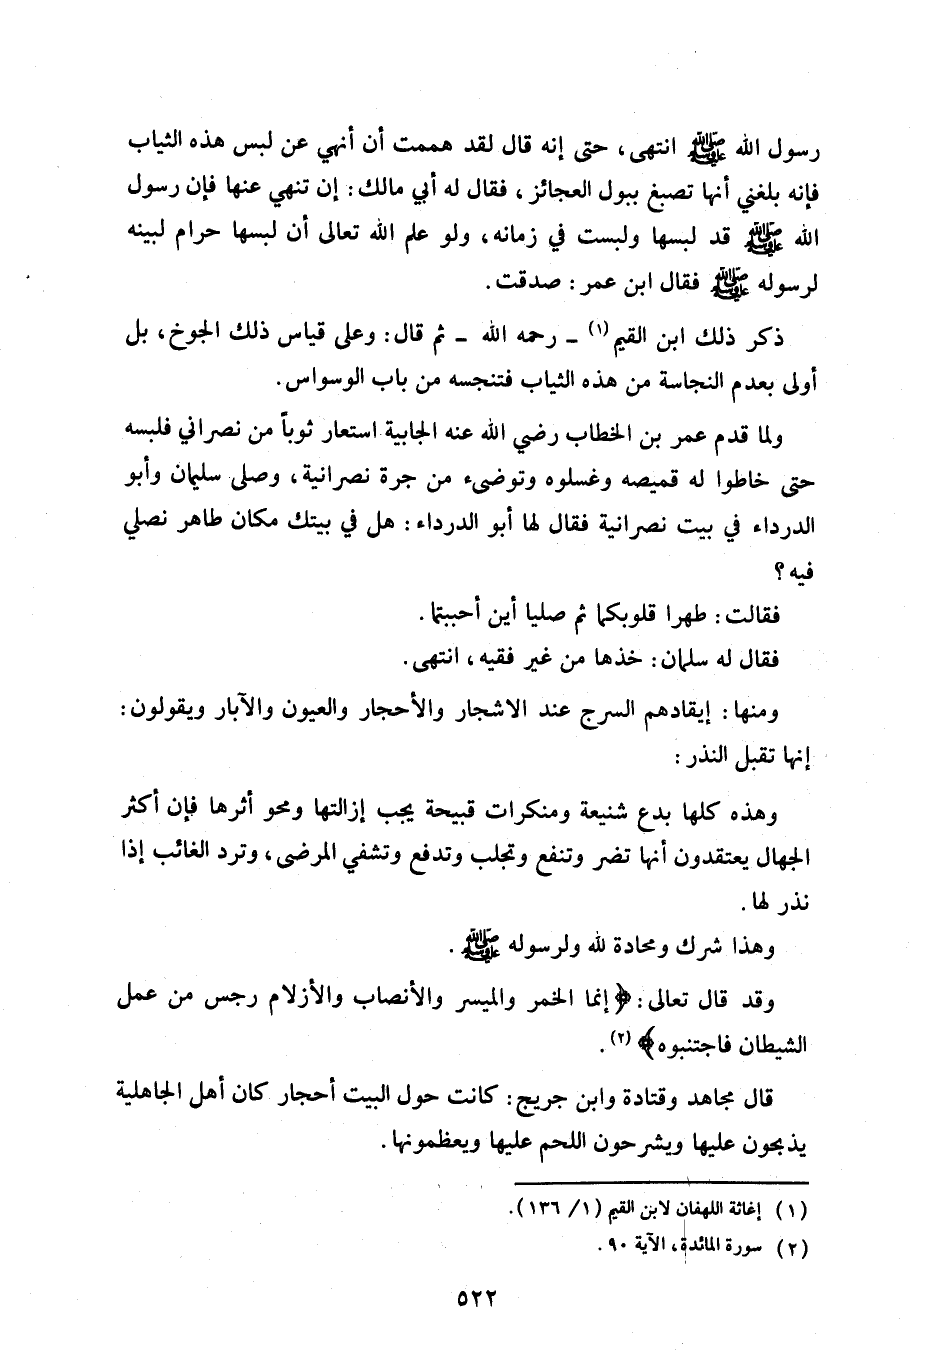 رسول الله ﷺ انتهى، حتى إنه قال لقد هممت أن أنهي عن لبس هذه الثياب
فإنه بلغني أنها تصبغ ببول العجائز، فقال له أبي مالك: إن تنهي عنها فإن رسول
الله ﷺ قد لبسها ولبست في زمانه، ولو علم الله تعالى أن لبسها حرام لبينه
لرسوله ﷺ فقال ابن عمر: صدقت.
ذكر ذلك ابن القيم(١) ـ رحمه الله ـ ثم قال: وعلى قياس ذلك الجوخ، بل
أولى بعدم النجاسة من هذه الثياب فتنجسه من باب الوسواس.
ولما قدم عمر بن الخطاب رضي الله عنه الجابية استعار ثوباً من نصراني فلبسه
حتى خاطوا له قميصه وغسلوه وتوضىء من جرة نصرانية، وصلى سليمان وأبو
الدرداء في بيت نصرانية فقال لها أبو الدرداء: هل في بيتك مكان طاهر نصلي
فيه؟
فقالت: طهرا قلوبكما ثم صليا أين أحببتما.
فقال له سلمان: خذها من غير فقيه، انتهى.
ومنها: إيقادهم السرج عند الاشجار والأحجار والعيون والآبار ويقولون:
إنها تقبل النذر:
وهذه كلها بدع شنيعة ومنكرات قبيحة يجب إزالتها ومحو أثرها فإن أكثر
الجهال يعتقدون أنها تضر وتنفع وتجلب وتدفع وتشفي المرضى، وترد الغائب إذا
نذر لها.
وهذا شرك ومحادة لله ولرسوله ﷺ.
وقد قال تعالى: ﴿إنما الخمر والميسر والأنصاب والأزلام رجس من عمل
الشيطان فاجتنبوه﴾(٢).
قال مجاهد وقتادة وابن جريج: كانت حول البيت أحجار كان أهل الجاهلية
يذبحون عليها ويشرحون اللحم عليها ويعظمونها.
(١) إغاثة اللهفان لابن القيم (١/ ١٣٦).
(٢) سورة المائدة، الآية ٩٠.
٥٢٢